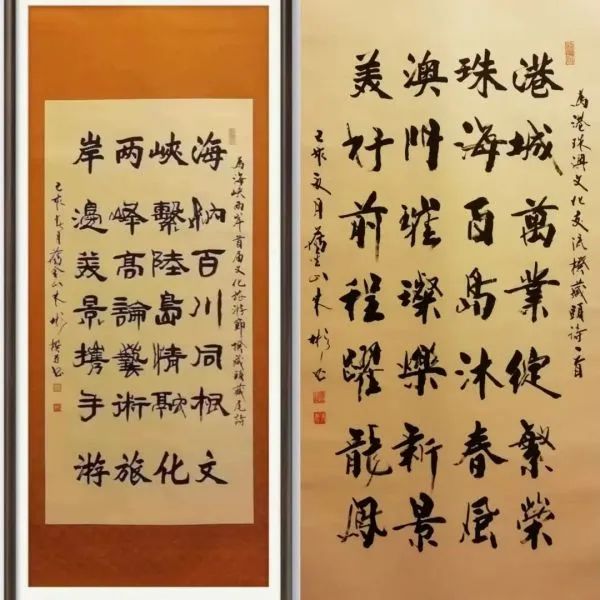 為海峽兩岸首届文化旅游節撰藏頭藏尾詩
海納百川同根文
峽繫陸島情化
两峰高論藝術旅
岸邊美景携手游
己亥春月舊金山
為港珠澳文化交流撰藏頭詩一首
港城萬業綻繁榮
珠海百島沐春風
澳門璀璨爍新景
美好前程躍龍鳳
己亥夏月舊金山